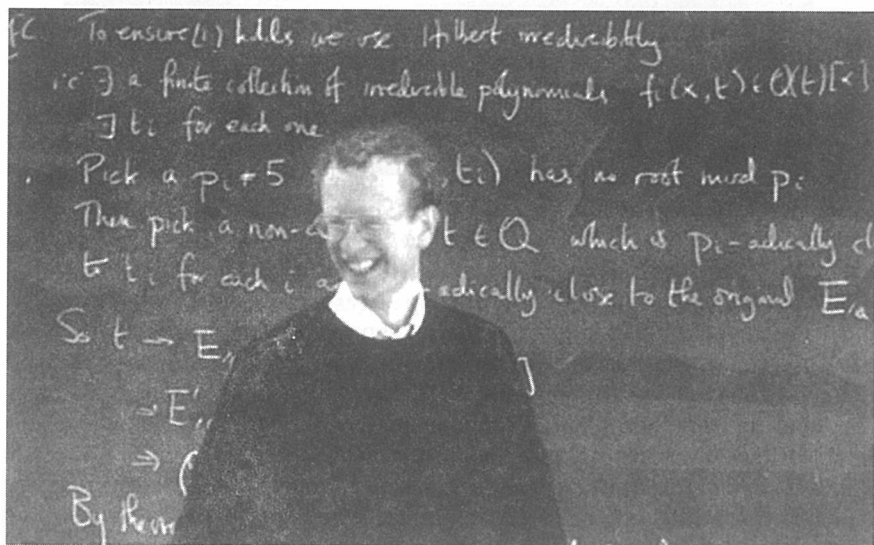 To ensure (i) holds we use Hilbert irreducibility
i.e ∃ a finite collection of irreducible polynomials fi(x,t) ∈ Q(t)[x]
∃ ti for each one
. Pick a pi ≠ 5 , ti) has no root mod pi
Then pick a non- t ∈ Q which is pi-adically cl
to ti for each i a -adically close to the original E/Q
So t → E ]
→ E'
⇒ (
By theo